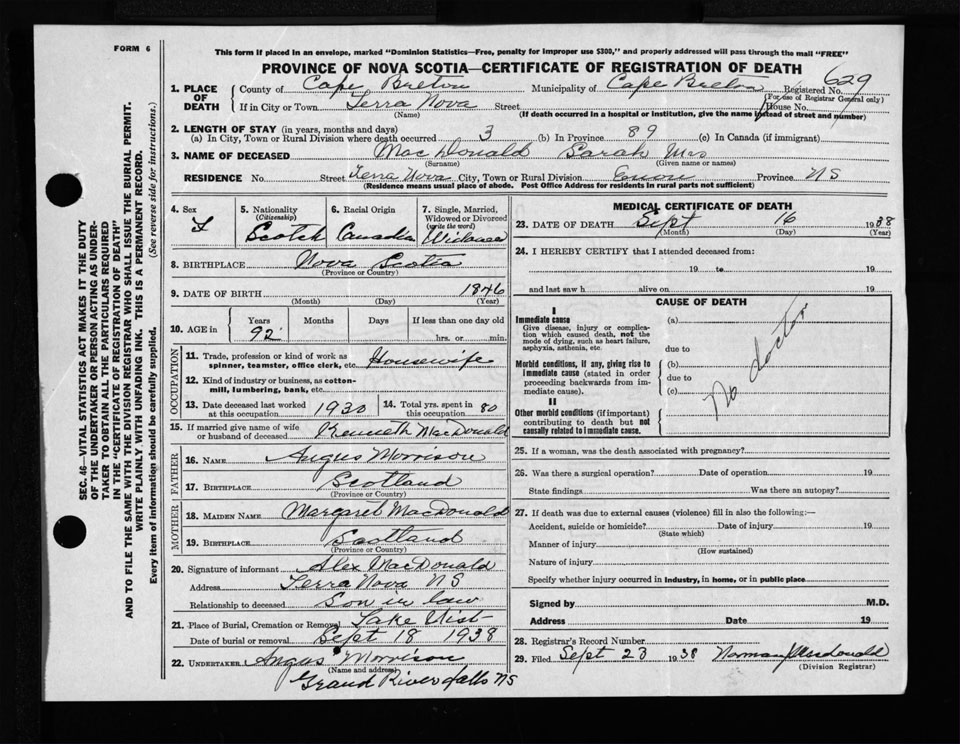 FORM 6
This form if placed in an envelope, marked "Dominion Statistics—Free, penalty for improper use $300," and properly addressed will pass through the mail "FREE"
PROVINCE OF NOVA SCOTIA—CERTIFICATE OF REGISTRATION OF DEATH
1. PLACE OF DEATH County of Cape Breton Municipality of Cape Breton Registered No. 629
(For use of Registrar General only)
If in City or Town Terra Nova Street House No.
(Name) (If death occurred in a hospital or institution, give the name instead of street and number)
2. LENGTH OF STAY (in years, months and days)
(a) In City, Town or Rural Division where death occurred 3 (b) In Province 89 (c) In Canada (if immigrant)
3. NAME OF DECEASED MacDonald Sarah Mrs
(Surname) (Given name or names)
RESIDENCE No. Street Terra Nova City, Town or Rural Division Enon Province NS
(Residence means usual place of abode. Post Office Address for residents in rural parts not sufficient)
4. Sex F
5. Nationality (Citizenship) Scotch
6. Racial Origin Canadian
7. Single, Married, Widowed or Divorced (write the word) Widowed
8. BIRTHPLACE Nova Scotia
(Province or Country)
9. DATE OF BIRTH 1846
(Month) (Day) (Year)
10. AGE in Years Months Days If less than one day old
92 hrs. or min.
OCCUPATION
11. Trade, profession or kind of work as spinner, teamster, office clerk, etc. Housewife
12. Kind of industry or business, as cotton-mill, lumbering, bank, etc.
13. Date deceased last worked at this occupation 1930
14. Total yrs. spent in this occupation 80
15. If married give name of wife or husband of deceased Kenneth MacDonald
FATHER
16. NAME Angus Morrison
17. BIRTHPLACE Scotland
(Province or Country)
MOTHER
18. MAIDEN NAME Margaret MacDonald
19. BIRTHPLACE Scotland
(Province or Country)
20. Signature of informant Alex MacDonald
Address Terra Nova NS
Relationship to deceased Son in law
21. Place of Burial, Cremation or Removal Lake Uist
Date of burial or removal Sept 18 1938
22. UNDERTAKER Angus Morrison
(Name and address)
Grand River falls NS
MEDICAL CERTIFICATE OF DEATH
23. DATE OF DEATH Sept 16 1938
(Month) (Day) (Year)
24. I HEREBY CERTIFY that I attended deceased from:
19 to 19
and last saw h alive on 19
CAUSE OF DEATH
I
Immediate cause
Give disease, injury or complication which caused death, not the mode of dying, such as heart failure, asphyxia, asthenia, etc.
(a)
due to
Morbid conditions, if any, giving rise to immediate cause (stated in order proceeding backwards from immediate cause).
(b)
due to
(c)
II
Other morbid conditions (if important) contributing to death but not causally related to immediate cause.
No doctor
25. If a woman, was the death associated with pregnancy?
26. Was there a surgical operation? Date of operation 19
State findings Was there an autopsy?
27. If death was due to external causes (violence) fill in also the following:—
Accident, suicide or homicide? Date of injury 19
(State which)
Manner of injury
(How sustained)
Nature of injury
Specify whether injury occurred in industry, in home, or in public place
Signed by M.D.
Address Date 19
28. Registrar's Record Number
29. Filed Sept 23 1938 Norman J Macdonald
(Division Registrar)
SEC. 46—VITAL STATISTICS ACT MAKES IT THE DUTY
OF THE UNDERTAKER OR PERSON ACTING AS UNDER-
TAKER TO OBTAIN ALL THE PARTICULARS REQUIRED
IN THE "CERTIFICATE OF REGISTRATION OF DEATH"
AND TO FILE THE SAME WITH THE DIVISION REGISTRAR WHO SHALL ISSUE THE BURIAL PERMIT.
WRITE PLAINLY WITH UNFADING INK. THIS IS A PERMANENT RECORD.
Every item of information should be carefully supplied. (See reverse side for instructions.)